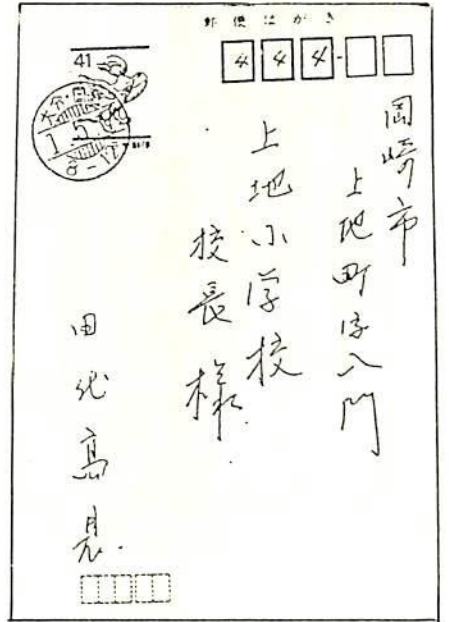 郵便はがき
444-
41
岡崎市
上地町字入門
上地小学校
校長様
田代高